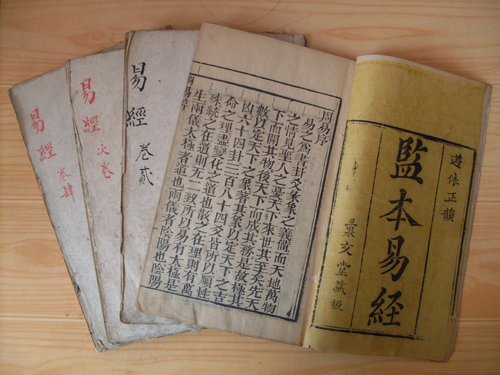 遵依正韻
監本易經
彙文堂藏板
周易序
易之為書卦爻彖象之義備而天地萬物
之情見聖人之憂天下來世其至矣先天
下而開其物後天下而成其務是故極其
數以定天下之象著其象以定天下之吉
凶六十四卦三百八十四爻皆所以順性
命之理盡變化之道也散之在理則有萬
殊統之在道則無二致所以易有太極是
生兩儀太極者道也兩儀者陰陽也陰陽
周易序
易經 卷貳
易經 次卷
易經 卷肆